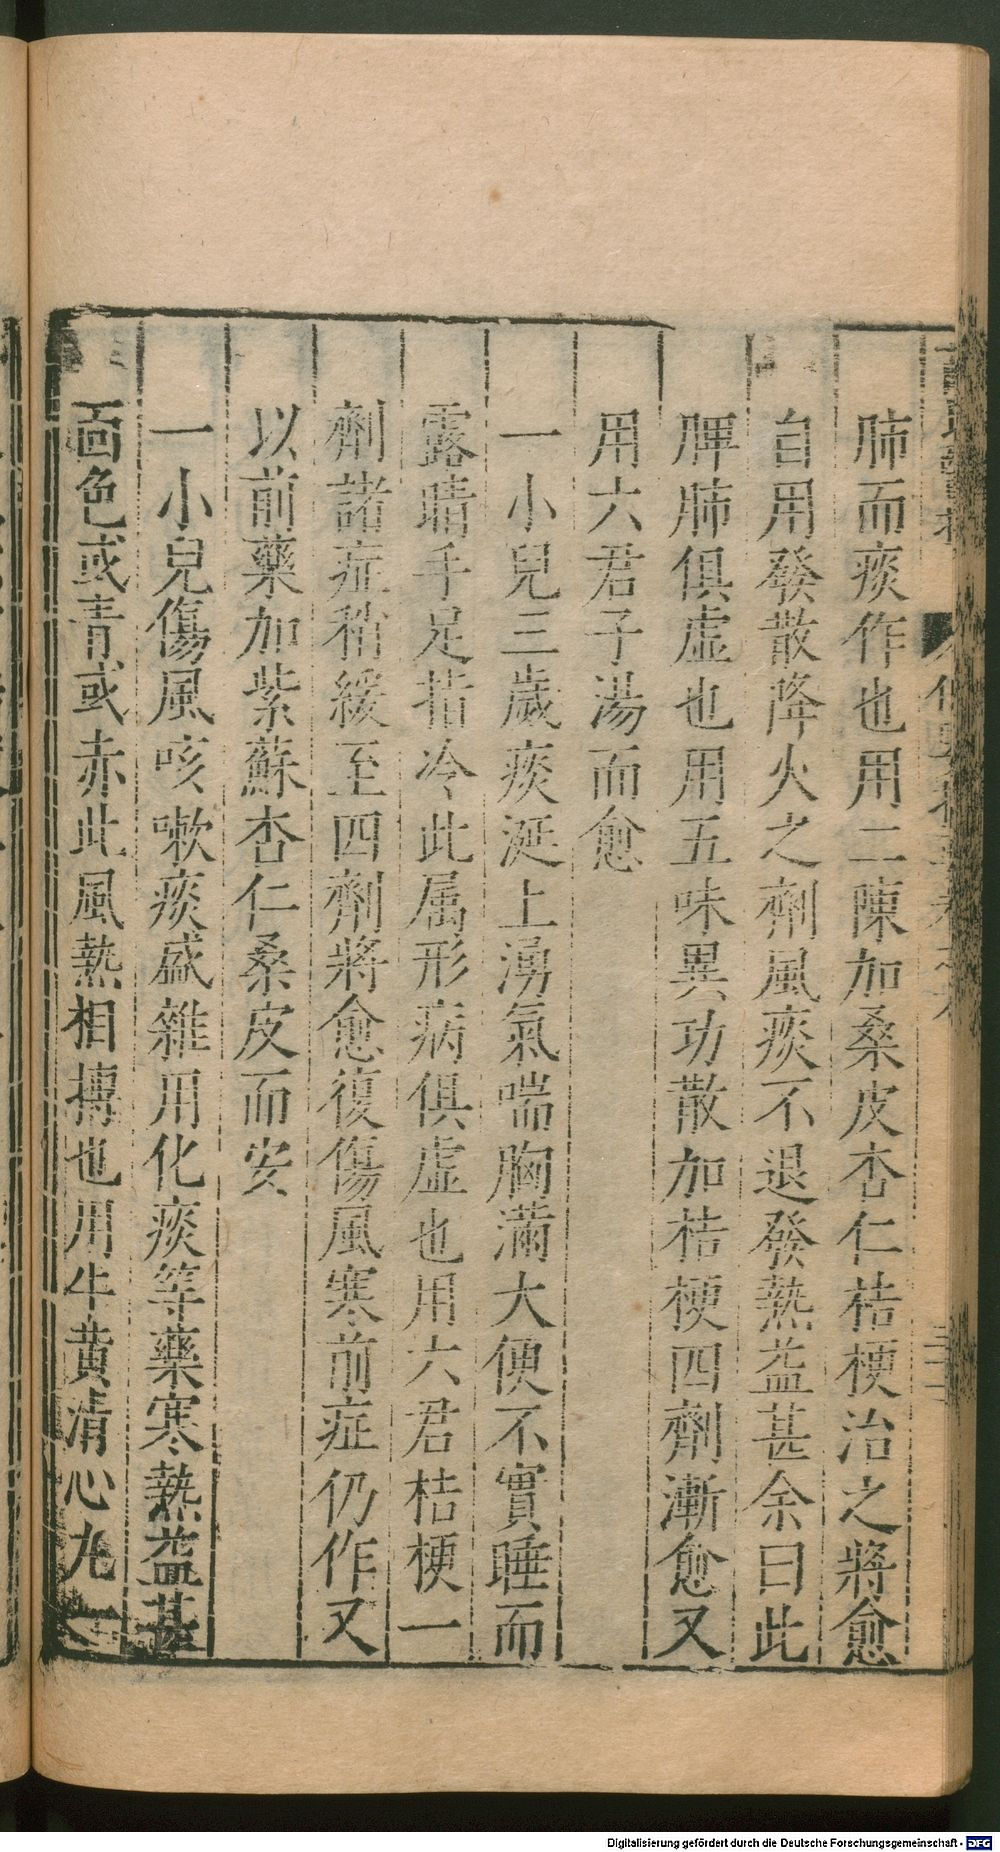 肺而痰作也用二陳加桑皮杏仁桔梗治之將愈
自用發散降火之劑風痰不退發熱益甚余曰此
脾肺俱虛也用五味異功散加桔梗四劑漸愈又
用六君子湯而愈
一小兒三歲痰涎上湧氣喘胸滿大便不實睡而
露睛手足指冷此属形病俱虛也用六君桔梗一
劑諸症稍緩至四劑將愈復傷風寒前症仍作又
以前藥加紫蘇杏仁桑皮而安
一小兒傷風咳嗽痰盛雜用化痰等藥寒熱益甚
面色或青或赤此風熱相搏也用牛黄清心丸一
Digitalisierung gefördert durch die Deutsche Forschungsgemeinschaft - DFG